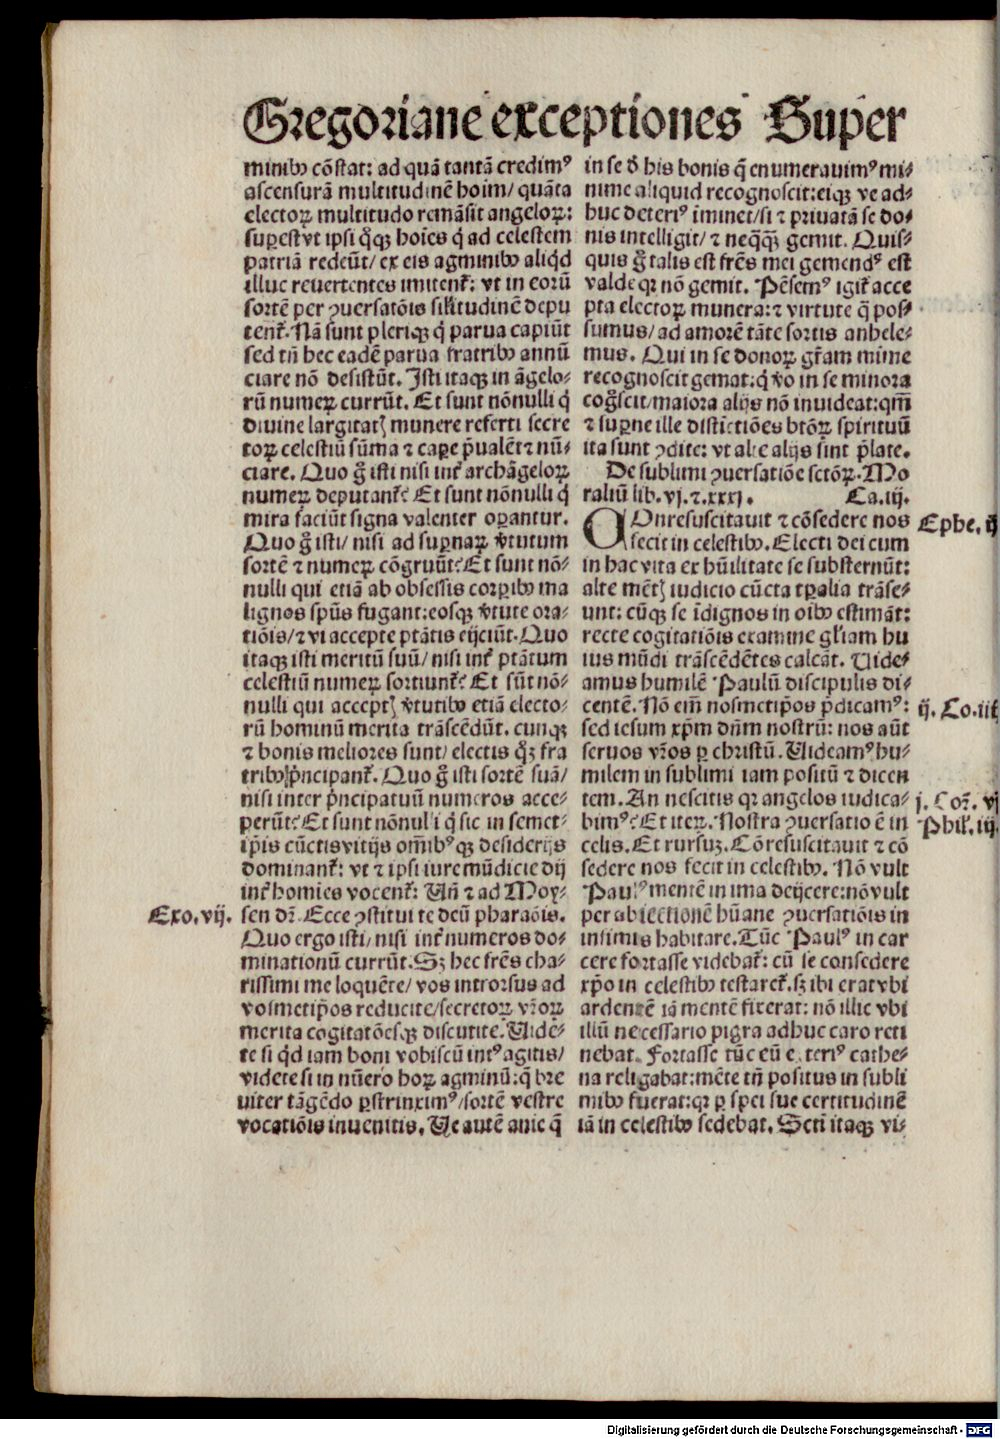 Gregoriane exceptiones Super
minibꝰ cõstat: ad quã tantã credimꝰ
ascensurã multitudinẽ hoim/ quãta
electoꝝ multitudo remãsit angeloꝝ:
suꝑest vt ipsi q̃qꝫ hoĩes q̇ ad celestem
patriã redeũt/ ex eis agminibꝰ aliq̇d
illuc reuertentes imitent᷑: vt in eorũ
sortẽ per ꝯuersatõis sil̃itudinẽ depu
tent᷑. Nã sunt pleriqꝫ q̇ parua capiũt
sed tñ hec eadẽ parua fratribꝰ annũ
ciare nõ desistũt. Isti itaqꝫ in ãgelo⸗
rũ numeꝝ currũt. Et sunt nõnulli q̇
diuine largitatꝭ munere referti secre
toꝝ celestiũ sũma ⁊ caꝑe p̃ualẽt ⁊ nũ⸗
ciare. Quo g̃ isti nisi int᷑ archãgeloꝝ
numeꝝ deputant᷑? Et sunt nõnulli q̇
mira faciũt signa valenter oꝑantur.
Quo g̃ isti/ nisi ad suꝑnaꝝ v̓tutum
sortẽ ⁊ numeꝝ cõgruũt? Et sunt nõ⸗
nulli qui etiã ab obsessis corꝑibꝰ ma
lignos spũs fugant: eosqꝫ v̓tute ora⸗
tiõis/ ⁊ vi accepte ptãtis eijciũt. Quo
itaqꝫ isti meritũ suũ/ nisi int᷑ ptãtum
celestiũ numeꝝ sortiunt᷑? Et sũt nõ⸗
nulli qui acceptꝭ v̓tutibꝰ etiã electo⸗
rũ hominũ merita trãscẽdũt. cunqꝫ
⁊ bonis meliores sunt/ electis q̃ꝫ fra
tribꝰ p̓ncipant᷑. Quo g̃ isti sortẽ suã/
nisi inter p̓ncipatuũ numeros acce⸗
perũt? Et sunt nõnulli q̇ sic in semet⸗
ip̃is cũctis vitijs om̃ibꝰqꝫ desiderijs
dominant᷑: vt ⁊ ipsi iure mũdicie dij
int᷑ homies vocent᷑: Uñ ⁊ ad Moy⸗
Exo. vij. sen dr̃. Ecce ꝯstitui te deũ pharaõis.
Quo ergo isti/ nisi int᷑ numeros do⸗
minationũ currũt. Sꝫ hec fr̃es cha⸗
rissimi me loquẽte/ vos introrsus ad
vosmetip̃os reducite/ secretoꝝ vr̃oꝝ
merita cogitatõesqꝫ discutite. Uidẽ⸗
te si q̇d iam boni vobiscũ intꝰ agitis/
videte si in nũero hoꝝ agminũ: q̃ bre
uiter tãgẽdo ꝑstrinximꝰ/ sortẽ vestre
vocatiõis inuenitis. Ue autẽ anie q̃
in se d̓ his bonis q̃ enumerauimꝰ mi⸗
nime aliquid recognoscit: eiqꝫ ve ad⸗
huc deteriꝰ iminet/ si ⁊ priuatã se do⸗
nis intelligit/ ⁊ neqꝗ̃ gemit. Quis⸗
quis g̃ talis est fr̃es mei gemendꝰ est
valde qꝛ nõ gemit. Pẽsemꝰ igit᷑ acce
pta electoꝝ munera: ⁊ virtute q̃ pos⸗
sumus/ ad amorẽ tãte sortis anhele⸗
mus. Qui in se donoꝝ gr̃am mime
recognoscit gemat: q̇ v̓o in se minora
cog̃scit/ maiora alijs nõ inuideat: qm̃
⁊ suꝑne ille distictiões btõꝝ spirituũ
ita sunt ꝯdite: vt alie alijs sint p̃late.
De sublimi ꝯuersatiõe sctõꝝ. Mo
raliũ lib. vj. ⁊ .xxxj. Ca. iij.
COnresuscitauit ⁊ cõsedere nos Ephe. ij
fecit in celestibꝰ. Electi dei cum
in hac vita ex hũilitate se substernũt:
alte mẽtꝭ iudicio cũcta tꝑalia trãse⸗
unt: cũqꝫ se ĩdignos in oĩbꝰ estimãt:
recte cogitatiõis examine gl̃iam hu
ius mũdi trãscẽdẽtes calcãt. Uide⸗
amus humilẽ Paulũ discipulis di⸗
centẽ. Nõ em̃ nosmetip̃os p̃dicamꝰ: ij. Co. iiij
sed iesum xp̃m dñm nostrũ: nos aũt
seruos vr̃os ꝑ christũ. Uideamꝰ hu⸗
milem in sublimi iam positũ ⁊ dicen
tem. An nescitis qꝛ angelos iudica⸗ j. Coꝛ̃. vj
bimꝰ? Et iteꝝ. Nostra ꝯuersatio ẽ in Phil᷑. iij.
celis. Et rursuꝫ. Cõresuscitauit ⁊ cõ
sedere nos fecit in celestibꝰ. Nõ vult
Paulꝰ mentẽ in ima deijcere: nõ vult
per abiectionẽ hũane ꝯuersatiõis in
infimis habitare. Tũc Paulꝰ in car
cere fortasse videbat᷑: cũ se consedere
xp̃o in celestibꝰ testaret᷑. sꝫ ibi erat vbi
ardentẽ iã mentẽ fixerat: nõ illic vbi
illũ necessario pigra adhuc caro reti
nebat. Fortasse tũc eũ exteriꝰ cathe⸗
na religabat: mẽte tñ positus in subli
mibꝰ fuerat: qꝛ ꝑ spei sue certitudinẽ
iã in celestibꝰ sedebat. Scti itaqꝫ vi⸗
Digitalisierung gefördert durch die Deutsche Forschungsgemeinschaft - DFG